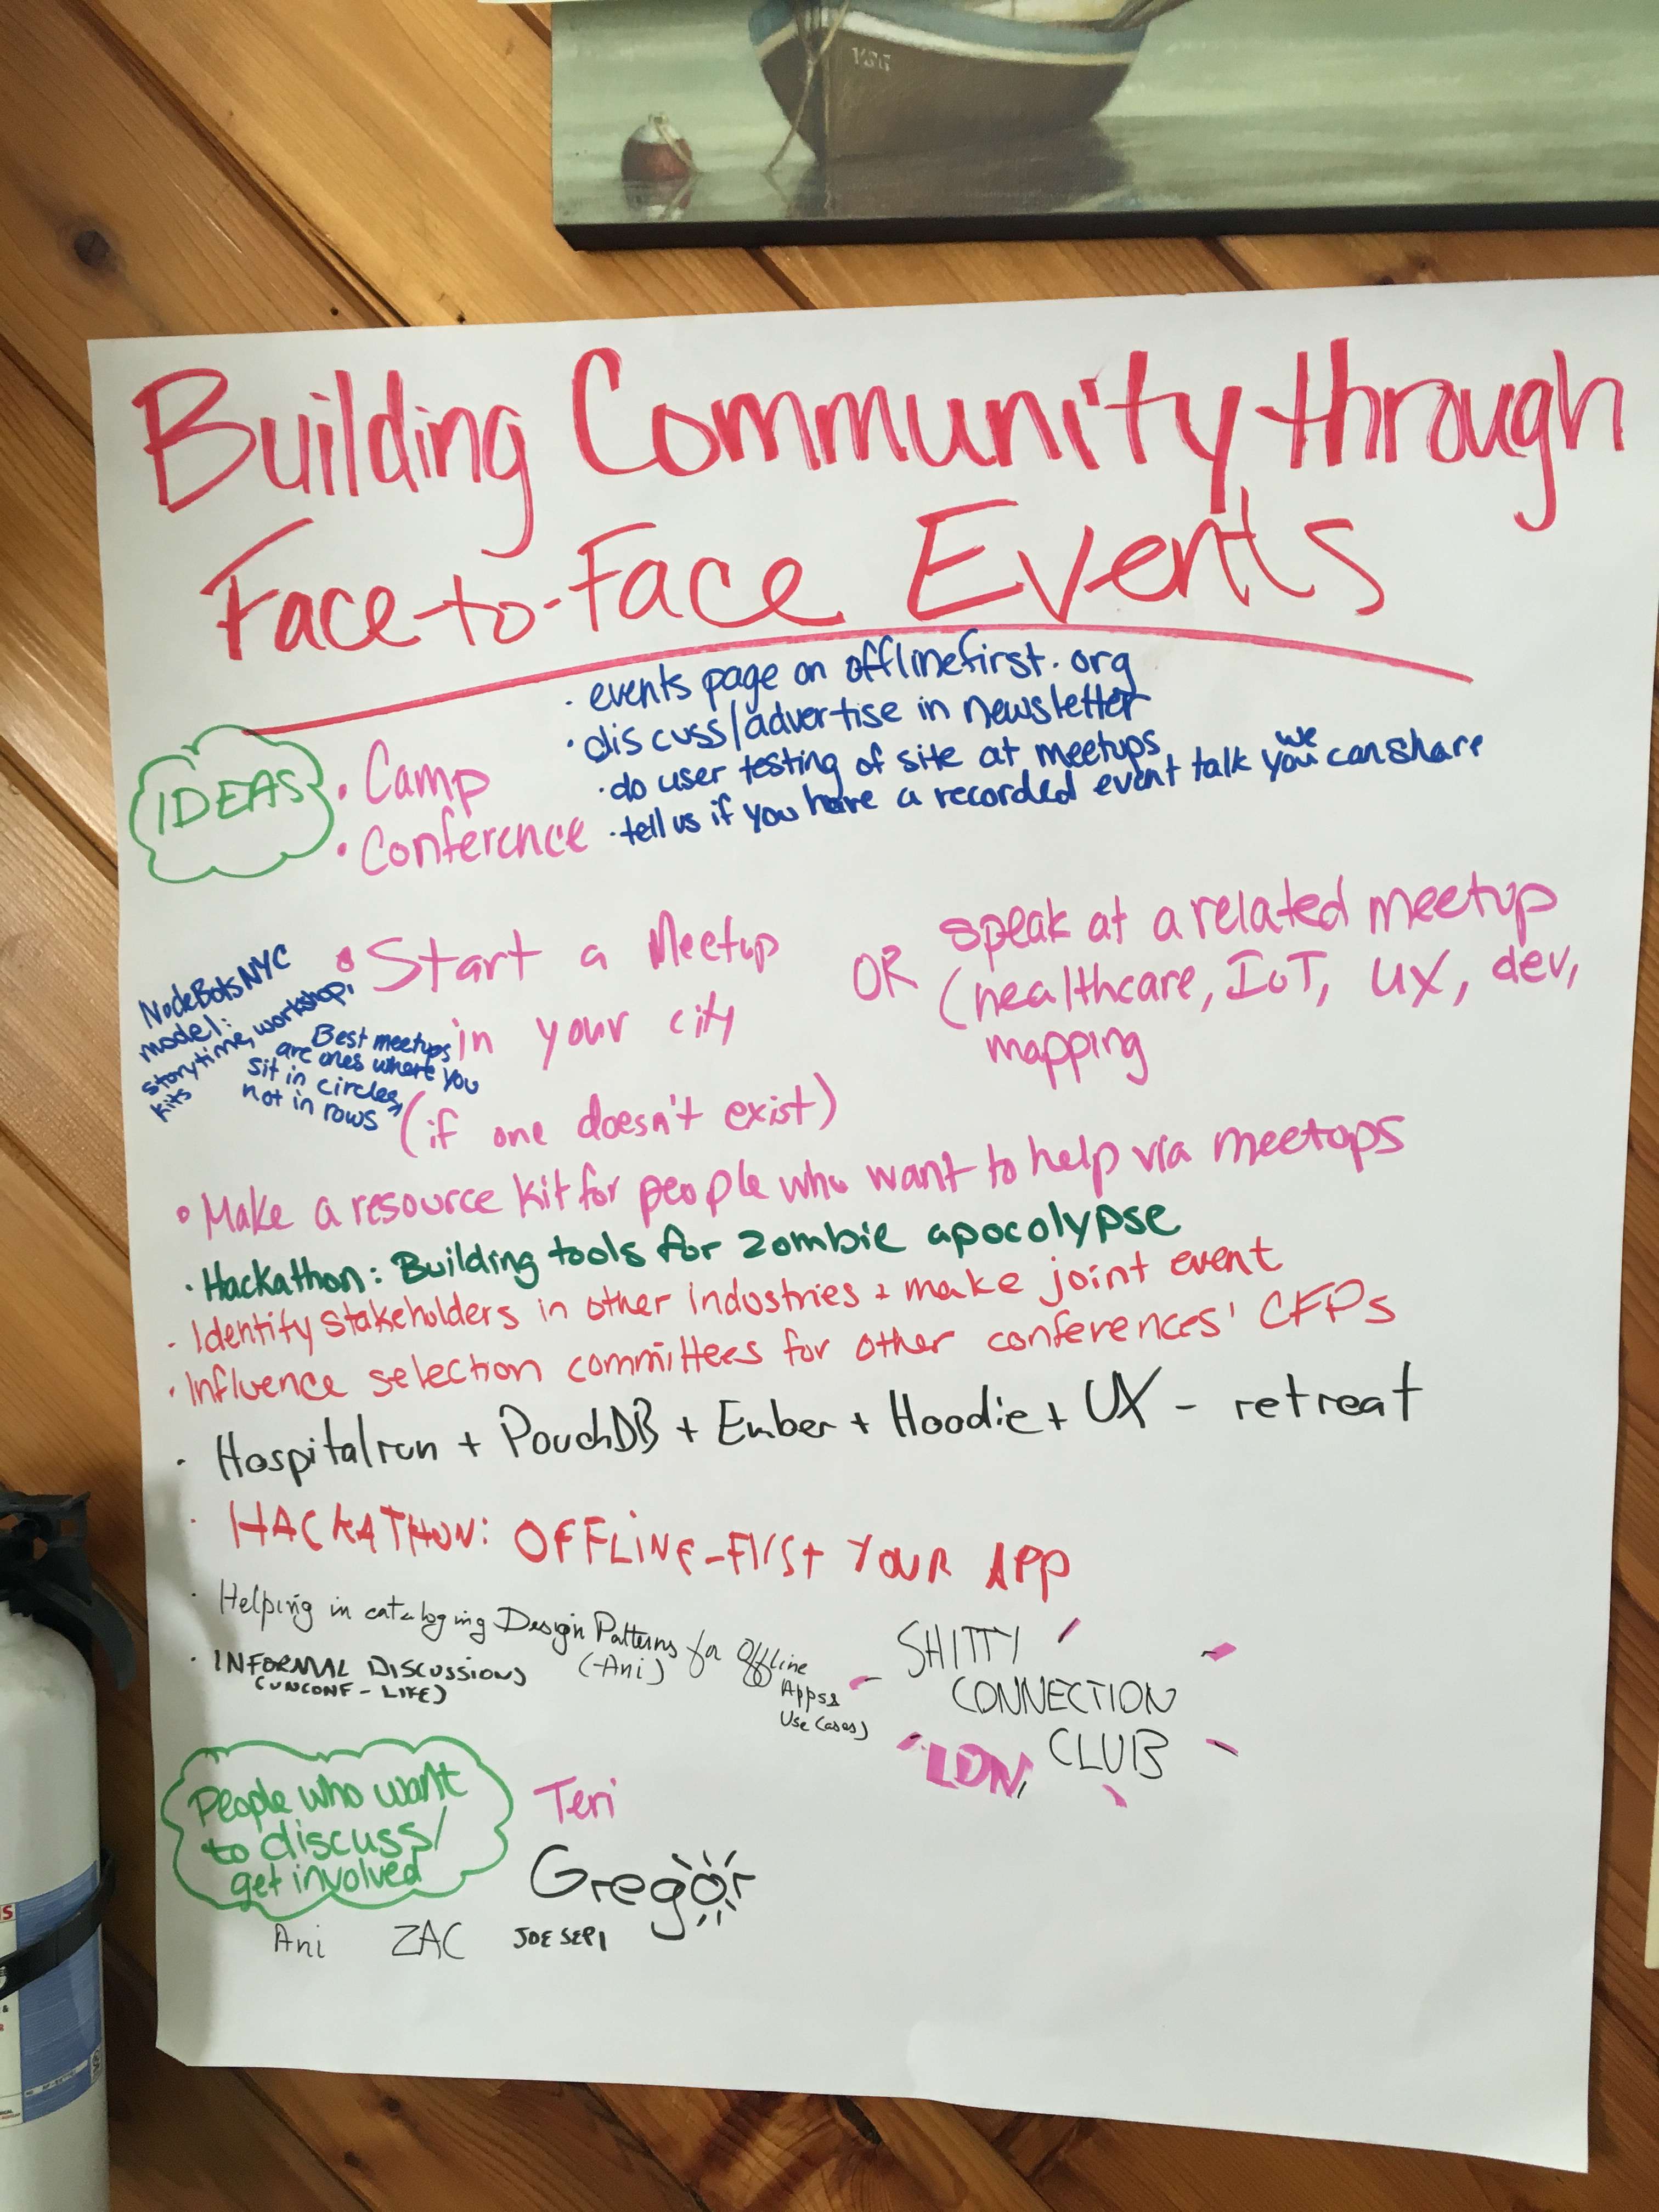 Building Community through
Face-to-Face Events
· events page on offlinefirst.org
· discuss/advertise in newsletter
· do user testing of site at meetups
we
· tell us if you have a recorded event talk you can share
IDEAS
· Camp
· Conference
NodeBotsNYC
model:
storytime, workshop,
kits
Best meetups
are ones where you
sit in circles,
not in rows
• Start a Meetup
in your city
(if one doesn't exist)
OR
speak at a related meetup
(healthcare, IoT, UX, dev,
mapping
• Make a resource kit for people who want to help via meetups
· Hackathon: Building tools for zombie apocolypse
· Identify stakeholders in other industries + make joint event
· Influence selection committees for other conferences' CFPs
· Hospitalrun + PouchDB + Ember + Hoodie + UX - retreat
· HACKATHON: OFFLINE-FIRSt YOUR APP
· Helping in cataloging Design Patterns for Offline
(-Ani)
Apps &
Use Cases)
· INFORMAL DISCUSSIONS
(UNCONF - LIKE)
- SHITTY
CONNECTION
CLUB
LDN
People who want
to discuss/
get involved
Teri
Gregor
Ani ZAC JOE SEPI